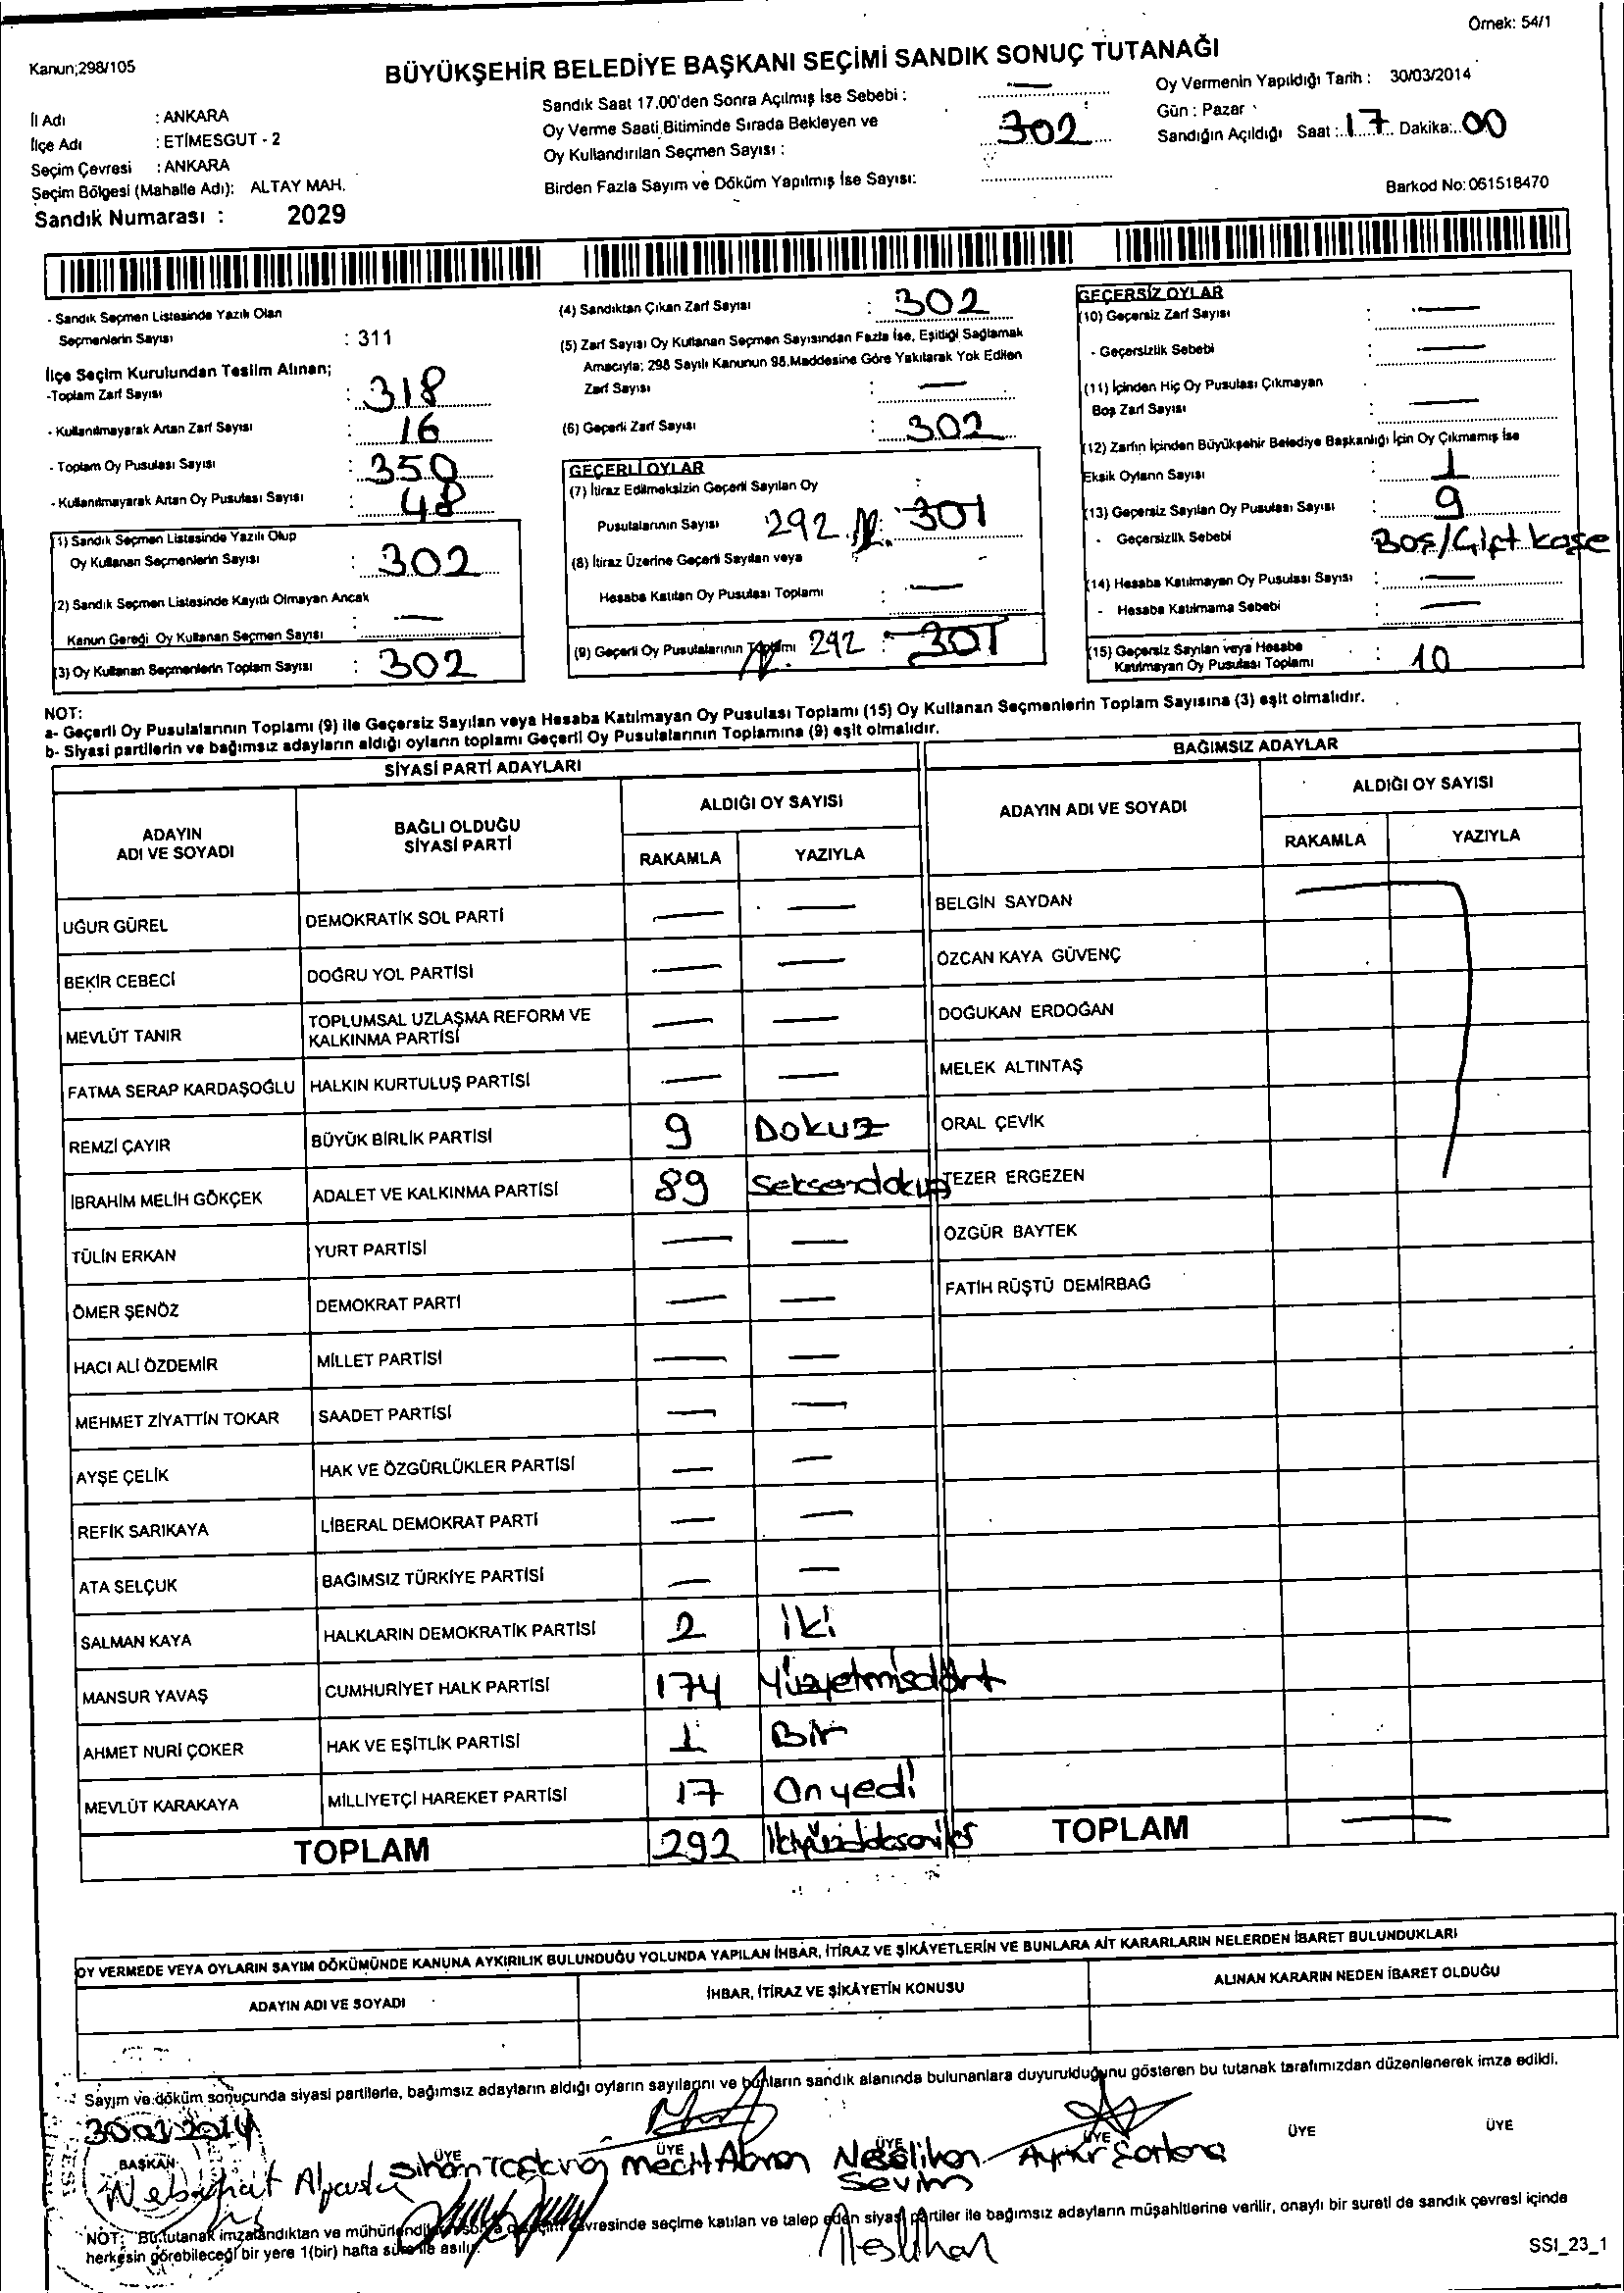 Örnek: 54/1
Kanun;298/105
BÜYÜKŞEHİR BELEDİYE BAŞKANI SEÇİMİ SANDIK SONUÇ TUTANAĞI
İl Adı : ANKARA
İlçe Adı : ETİMESGUT - 2
Seçim Çevresi : ANKARA
Seçim Bölgesi (Mahalle Adı): ALTAY MAH.
Sandık Numarası : 2029
Sandık Saat 17.00'den Sonra Açılmış İse Sebebi : —
Oy Verme Saati Bitiminde Sırada Bekleyen ve
Oy Kullandırılan Seçmen Sayısı : 302
Birden Fazla Sayım ve Döküm Yapılmış İse Sayısı:
Oy Vermenin Yapıldığı Tarih : 30/03/2014
Gün : Pazar
Sandığın Açıldığı Saat : 17 Dakika: 00
Barkod No: 061518470
- Sandık Seçmen Listesinde Yazılı Olan
Seçmenlerin Sayısı : 311
İlçe Seçim Kurulundan Teslim Alınan;
-Toplam Zarf Sayısı : 318
- Kullanılmayarak Artan Zarf Sayısı : 16
- Toplam Oy Pusulası Sayısı : 350
- Kullanılmayarak Artan Oy Pusulası Sayısı : 48
(1) Sandık Seçmen Listesinde Yazılı Olup
Oy Kullanan Seçmenlerin Sayısı : 302
(2) Sandık Seçmen Listesinde Kayıtlı Olmayan Ancak
Kanun Gereği Oy Kullanan Seçmen Sayısı : —
(3) Oy Kullanan Seçmenlerin Toplam Sayısı : 302
(4) Sandıktan Çıkan Zarf Sayısı : 302
(5) Zarf Sayısı Oy Kullanan Seçmen Sayısından Fazla İse, Eşitliği Sağlamak
Amacıyla; 298 Sayılı Kanunun 98.Maddesine Göre Yakılarak Yok Edilen
Zarf Sayısı : —
(6) Geçerli Zarf Sayısı : 302
GEÇERLİ OYLAR
(7) İtiraz Edilmeksizin Geçerli Sayılan Oy
Pusulalarının Sayısı 292 : 301
(8) İtiraz Üzerine Geçerli Sayılan veya
Hesaba Katılan Oy Pusulası Toplamı : —
(9) Geçerli Oy Pusulalarının Toplamı 292 : 301
GEÇERSİZ OYLAR
(10) Geçersiz Zarf Sayısı : —
- Geçersizlik Sebebi : —
(11) İçinden Hiç Oy Pusulası Çıkmayan
Boş Zarf Sayısı : —
(12) Zarfın İçinden Büyükşehir Belediye Başkanlığı İçin Oy Çıkmamış İse
Eksik Oyların Sayısı : 1
(13) Geçersiz Sayılan Oy Pusulası Sayısı : 9
- Geçersizlik Sebebi Boş/Çift kaşe
(14) Hesaba Katılmayan Oy Pusulası Sayısı : —
- Hesaba Katılmama Sebebi : —
(15) Geçersiz Sayılan veya Hesaba
Katılmayan Oy Pusulası Toplamı : 10
NOT:
a- Geçerli Oy Pusulalarının Toplamı (9) ile Geçersiz Sayılan veya Hesaba Katılmayan Oy Pusulası Toplamı (15) Oy Kullanan Seçmenlerin Toplam Sayısına (3) eşit olmalıdır.
b- Siyasi partilerin ve bağımsız adayların aldığı oyların toplamı Geçerli Oy Pusulalarının Toplamına (9) eşit olmalıdır.
SİYASİ PARTİ ADAYLARI
ADAYIN ADI VE SOYADI BAĞLI OLDUĞU SİYASİ PARTİ ALDIĞI OY SAYISI
RAKAMLA YAZIYLA
UĞUR GÜREL DEMOKRATİK SOL PARTİ — —
BEKİR CEBECİ DOĞRU YOL PARTİSİ — —
MEVLÜT TANIR TOPLUMSAL UZLAŞMA REFORM VE KALKINMA PARTİSİ — —
FATMA SERAP KARDAŞOĞLU HALKIN KURTULUŞ PARTİSİ — —
REMZİ ÇAYIR BÜYÜK BİRLİK PARTİSİ 9 Dokuz
İBRAHİM MELİH GÖKÇEK ADALET VE KALKINMA PARTİSİ 89 Seksendokuz
TÜLİN ERKAN YURT PARTİSİ — —
ÖMER ŞENÖZ DEMOKRAT PARTİ — —
HACI ALİ ÖZDEMİR MİLLET PARTİSİ — —
MEHMET ZİYATTİN TOKAR SAADET PARTİSİ — —
AYŞE ÇELİK HAK VE ÖZGÜRLÜKLER PARTİSİ — —
REFİK SARIKAYA LİBERAL DEMOKRAT PARTİ — —
ATA SELÇUK BAĞIMSIZ TÜRKİYE PARTİSİ — —
SALMAN KAYA HALKLARIN DEMOKRATİK PARTİSİ 2 iki
MANSUR YAVAŞ CUMHURİYET HALK PARTİSİ 174 Yüzyetmisdört
AHMET NURİ ÇOKER HAK VE EŞİTLİK PARTİSİ 1 Bir
MEVLÜT KARAKAYA MİLLİYETÇİ HAREKET PARTİSİ 17 Onyedi
TOPLAM 292
BAĞIMSIZ ADAYLAR
ADAYIN ADI VE SOYADI ALDIĞI OY SAYISI
RAKAMLA YAZIYLA
BELGİN SAYDAN
ÖZCAN KAYA GÜVENÇ
DOĞUKAN ERDOĞAN
MELEK ALTINTAŞ
ORAL ÇEVİK
TEZER ERGEZEN
ÖZGÜR BAYTEK
FATİH RÜŞTÜ DEMİRBAĞ
TOPLAM —
OY VERMEDE VEYA OYLARIN SAYIM DÖKÜMÜNDE KANUNA AYKIRILIK BULUNDUĞU YOLUNDA YAPILAN İHBAR, İTİRAZ VE ŞİKÂYETLERİN VE BUNLARA AİT KARARLARIN NELERDEN İBARET BULUNDUKLARI
ADAYIN ADI VE SOYADI İHBAR, İTİRAZ VE ŞİKÂYETİN KONUSU ALINAN KARARIN NEDEN İBARET OLDUĞU
Sayım ve döküm sonucunda siyasi partilerle, bağımsız adayların aldığı oyların sayılarını ve bunların sandık alanında bulunanlara duyurulduğunu gösteren bu tutanak tarafımızdan düzenlenerek imza edildi.
30.03.2014
BAŞKAN ÜYE ÜYE ÜYE ÜYE ÜYE ÜYE
Neslihan
Sevim
NOT: Bu tutanak imzalandıktan ve mühürlendikten sonra o seçim çevresinde seçime katılan ve talep eden siyasi partiler ile bağımsız adayların müşahitlerine verilir, onaylı bir sureti de sandık çevresi içinde
herkesin görebileceği bir yere 1(bir) hafta süre ile asılır.
Neslihan
SSI_23_1